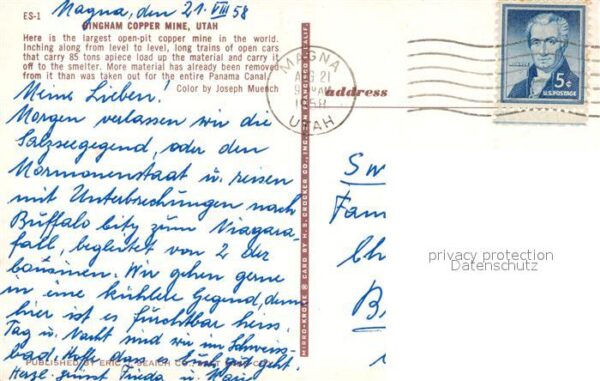 ES-1
Magna, den 21. VIII 58
BINGHAM COPPER MINE, UTAH
Here is the largest open-pit copper mine in the world.
Inching along from level to level, long trains of open cars
that carry 85 tons apiece load up the material and carry it
off to the smelter. More material has already been removed
from it than was taken out for the entire Panama Canal.
Color by Joseph Muench
Meine Lieben!
Morgen verlassen wir die
Salzseegegend, oder den
Mormonenstaat u. reisen
mit Unterbrechungen nach
Buffalo City zum Niagara-
fall, begleitet von 2 der
Cousinen. Wir gehen gerne
in eine kühlere Gegend, denn
hier ist es fürchtbar heiss.
Tag u. Nacht sind wir im Schweiss-
bad. Hoffe dass es Euch gut geht.
Herzl. grüsst Frieda u. Marie
PUBLISHED BY ERIC
MIRRO-KROME ® CARD BY H. S. CROCKER CO., INC. SAN FRANCISCO 1, CALIF.
MAGNA
AUG 21
1958
UTAH
address
5¢
U.S. POSTAGE
Sw
Fam
Ch
B
privacy protection
Datenschutz